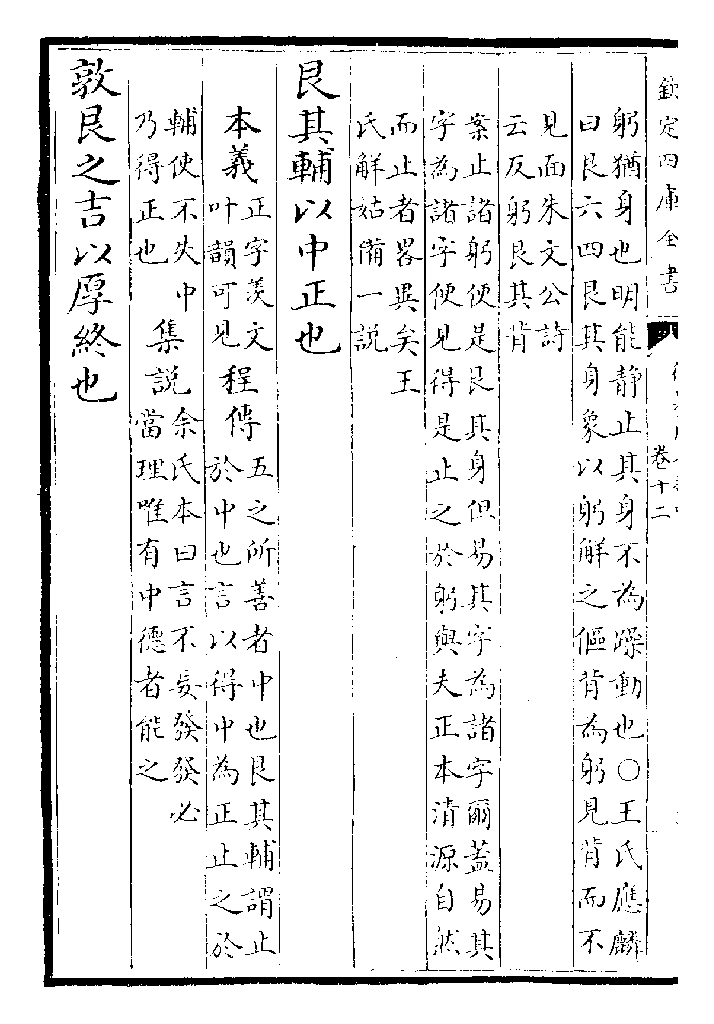 欽定四庫全書
卷十二
躬猶身也明能静止其身不為躁動也○王氏應麟
曰艮六四艮其身象以躬解之傴背為躬見背而不
見面朱文公詩
云反躬艮其背
案止諸躬便是艮其身但易其字為諸字爾蓋易其
字為諸字便見得是止之於躬與夫正本清源自然
而止者畧異矣王
氏解姑備一説
艮其輔以中正也
本義正字羨文
叶韻可見
程傳五之所善者中也艮其輔謂止
於中也言以得中為正止之於
輔使不失中
乃得正也
集説余氏本曰言不妄發發必
當理唯有中德者能之
敦艮之吉以厚終也